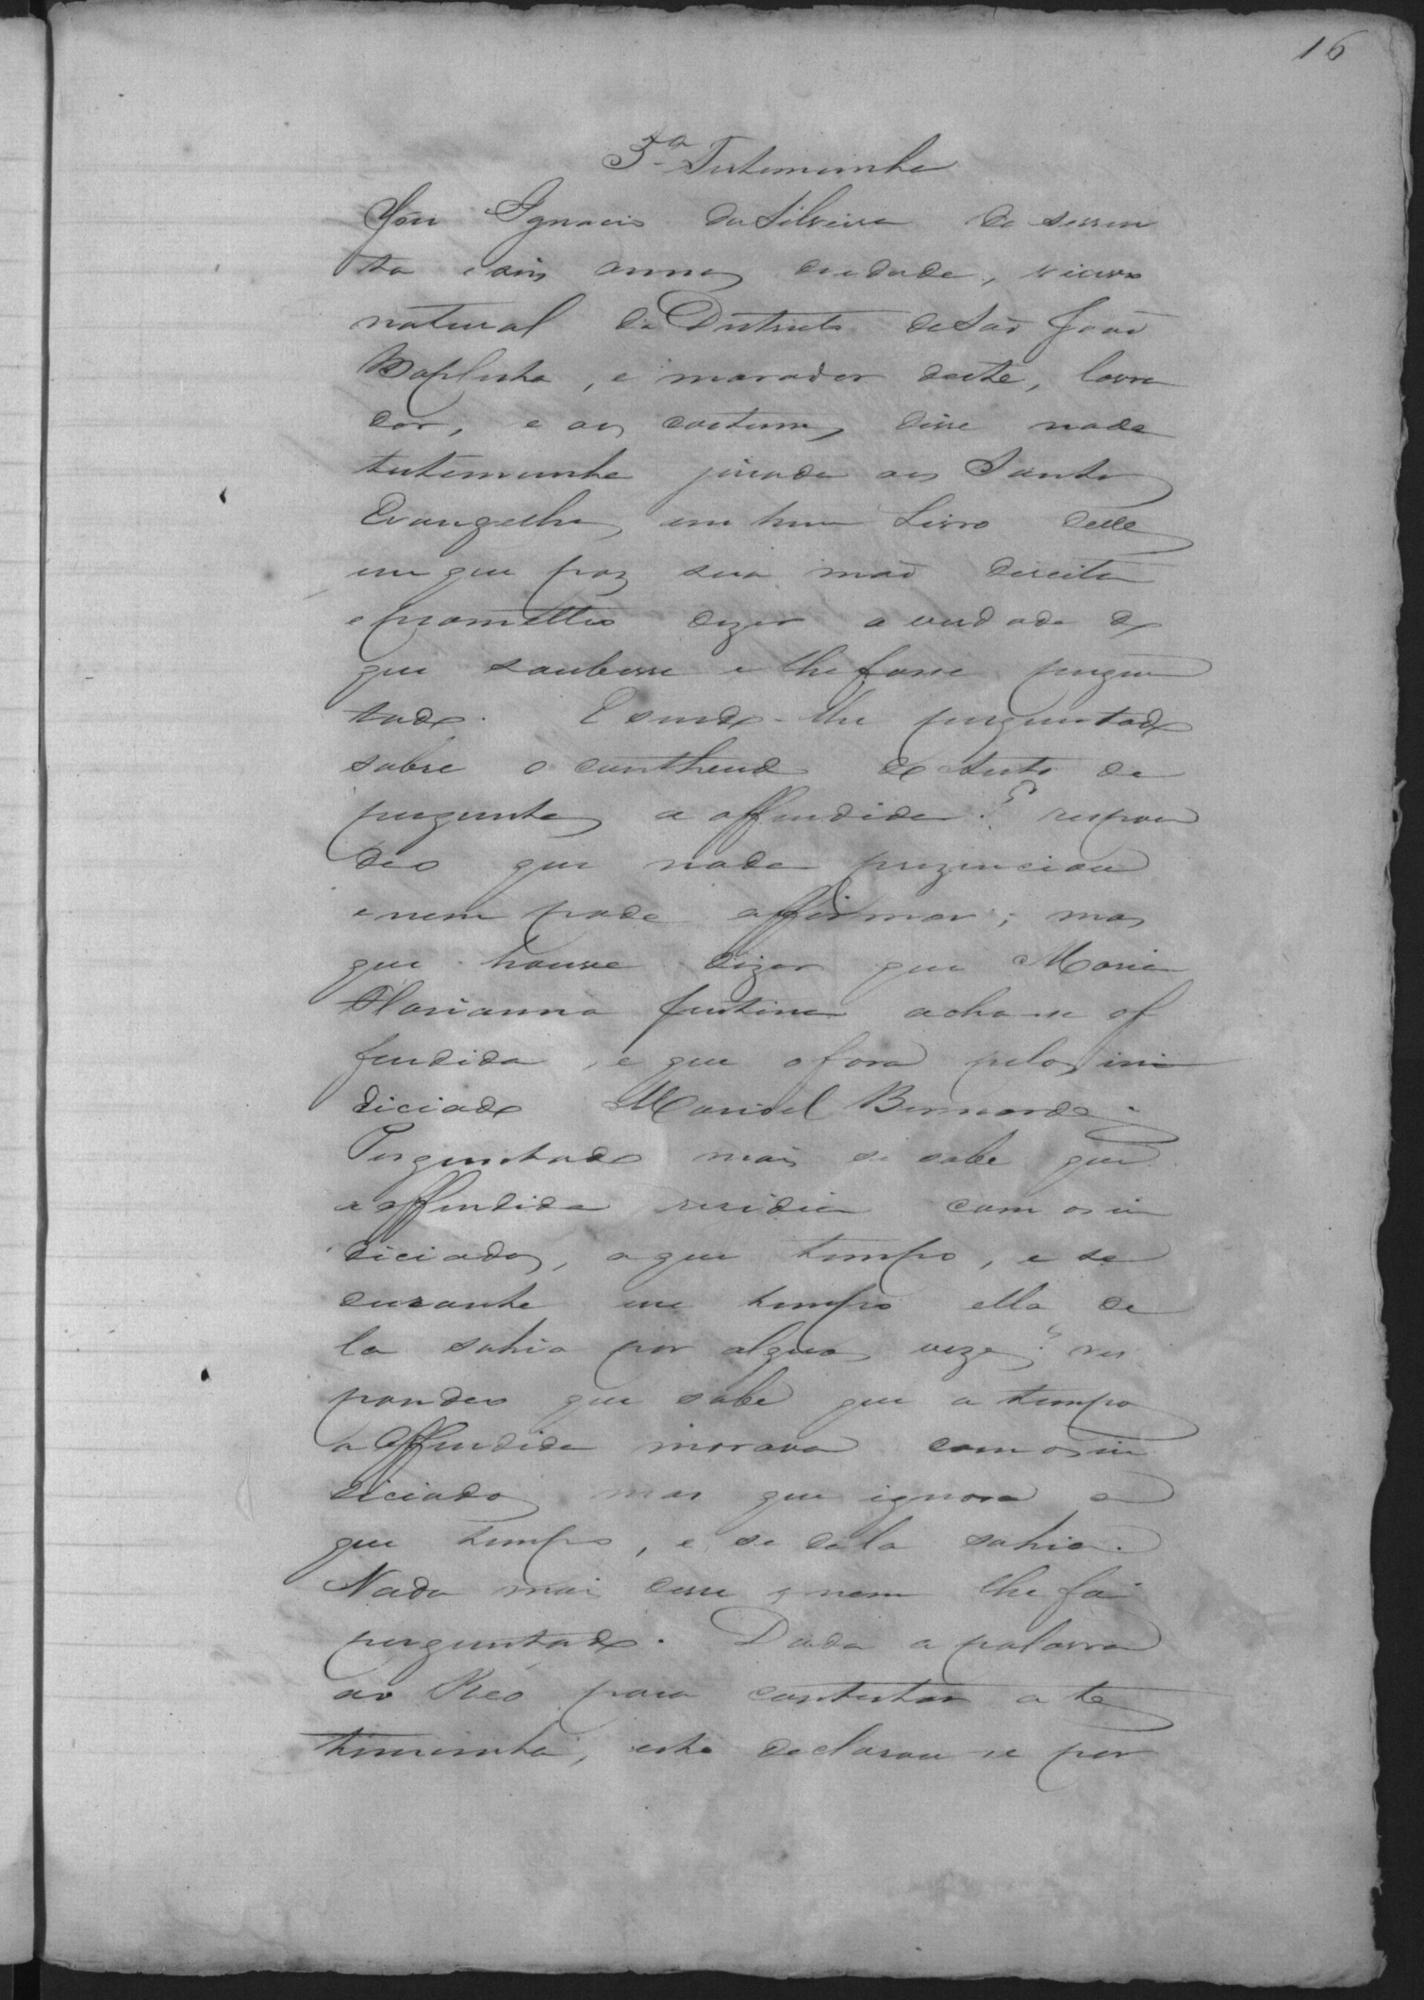 16
5ª Testemunha
José Ignacio da Silveira de sessen
ta e dois annos de idade, viuvo
natural do Districto de São João
Baptista, e morador deste, lavra
dor, e aos costumes disse nada
testemunha jurada aos Santos
Evangelhos em hum Livro delles
em que poz sua mão direita
e prometteo dizer a verdade do
que soubesse e lhe fosse pergun
tado. E sendo-lhe perguntado
sobre o contheudo do Auto de
perguntas a offendida? respon
deo que nada prezenciou
e nem pode affirmar; mas
que houve dizer que Maria
Marianna Justina acha-se of
fendida, e que o fora pelos in
diciado Manoel Bernardes.
Perguntado mais se sabe que
a offendida residia com os in
diciados, a que tempo, e se
durante esse tempo ella de
la sahio por alguas vezes? res
pondeo que sabe que a tempo
a offendida morava com os in
diciados mas que ignora a
que tempo, e se dela sahio.
Nada mais disse e nem lhe foi
perguntado. Dada a palavra
ao Réo para contestar a tes
temunha, este declarou-se por